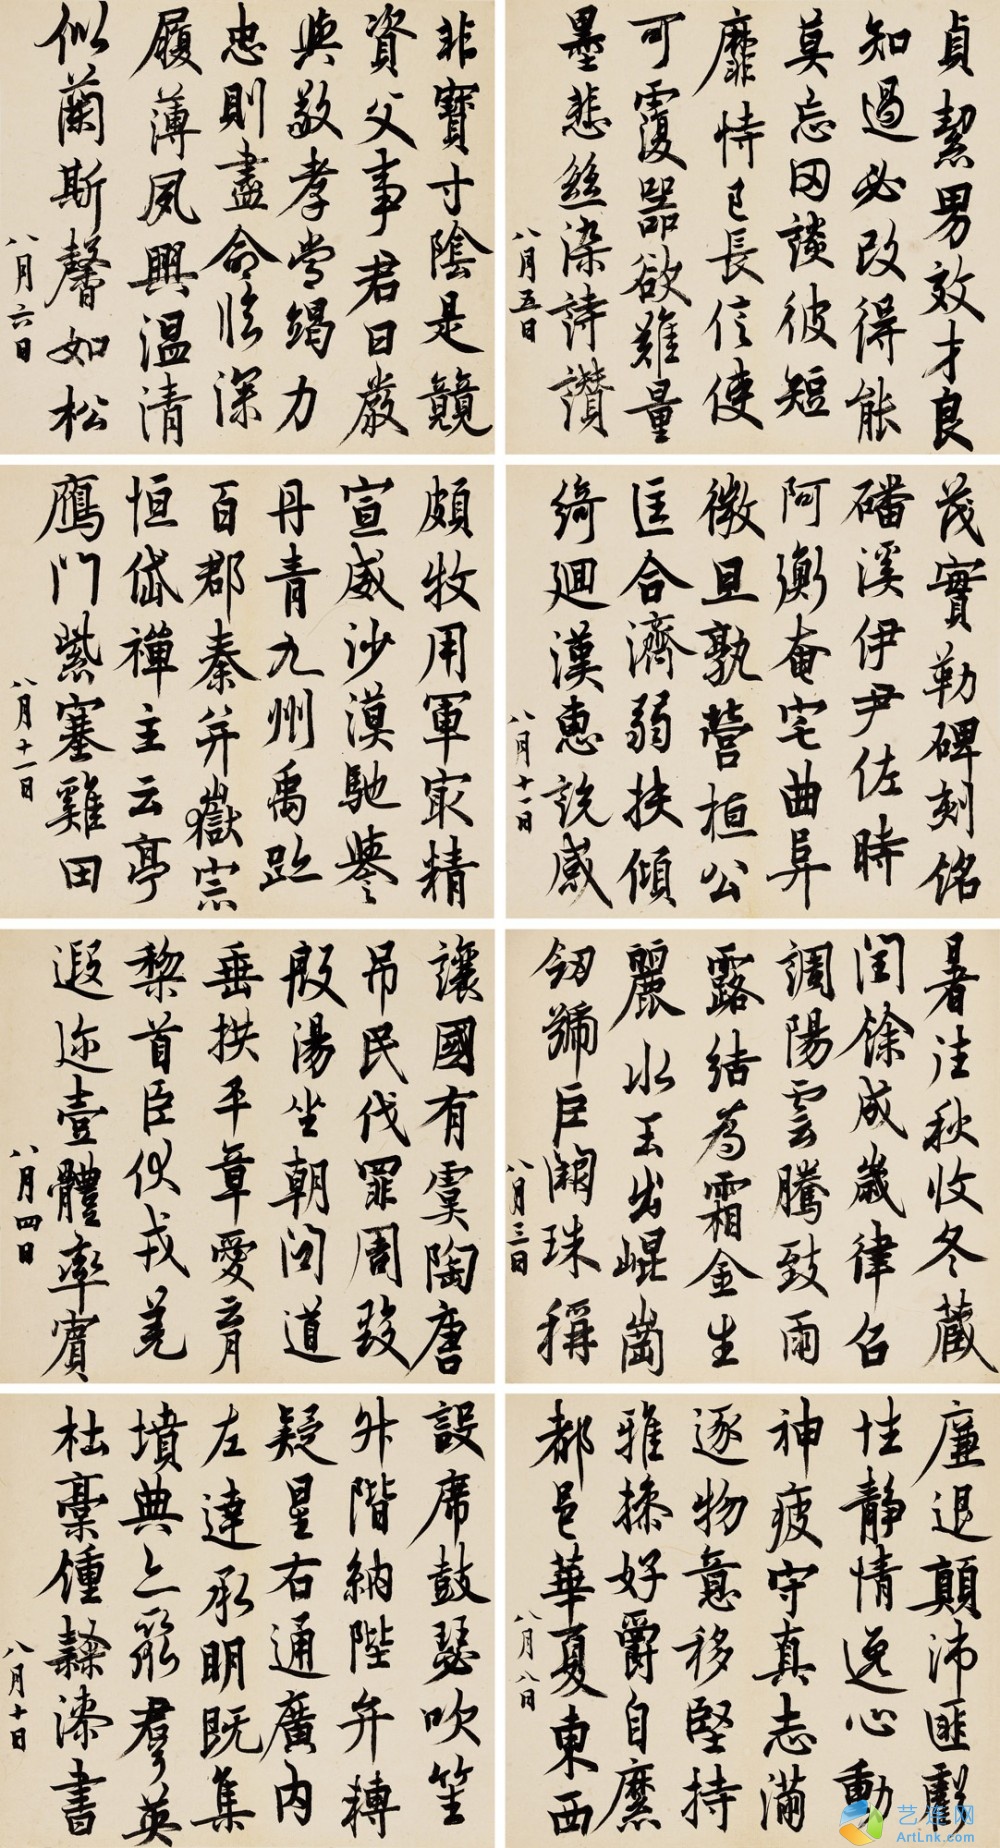 貞絜男效才良
知過必改得能
莫忘罔談彼短
靡恃己長信使
可覆器欲難量
墨悲絲染詩讚
八月五日
非寶寸陰是競
資父事君曰嚴
與敬孝當竭力
忠則盡命臨深
履薄夙興溫清
似蘭斯馨如松
八月六日
茂實勒碑刻銘
磻溪伊尹佐時
阿衡奄宅曲阜
微旦孰營桓公
匡合濟弱扶傾
綺迴漢惠說感
八月十一日
頗牧用軍最精
宣威沙漠馳譽
丹青九州禹跡
百郡秦并嶽宗
恒岱禪主云亭
鴈門紫塞雞田
八月十一日
暑往秋收冬藏
閏餘成歲律召
調陽雲騰致雨
露結為霜金生
麗水玉出崐崗
劒號巨闕珠稱
八月三日
讓國有虞陶唐
弔民伐罪周發
殷湯坐朝問道
垂拱平章愛育
黎首臣伏戎羌
遐邇壹體率賓
八月四日
廉退顛沛匪虧
性靜情逸心動
神疲守真志滿
逐物意移堅持
雅操好爵自縻
都邑華夏東西
八月八日
設席鼓瑟吹笙
升階納陛弁轉
疑星右通廣內
左達承明既集
墳典亦聚羣英
杜稾鍾隸漆書
八月十日
艺连网
ArtLink.com